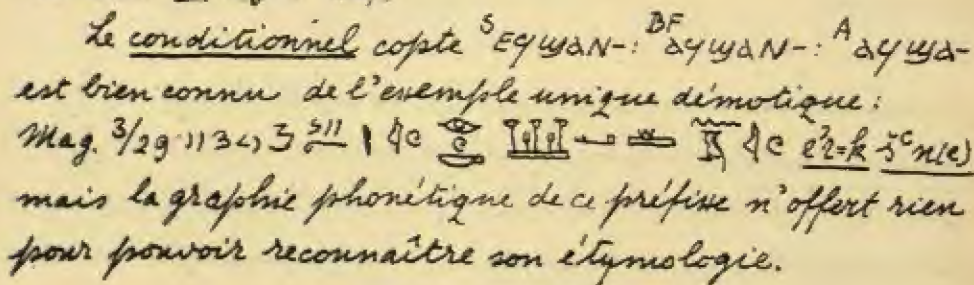 Le conditionnel copte ˢⲉϥϣⲁⲛ-: ᴮꟳⲁϥϣⲁⲛ-: ᴬⲁϥϣⲁ-
est bien connu de l'exemple unique démotique:
Mag. 3/29 e'r=k šʿn(e)
mais la graphie phonétique de ce préfixe n'offert rien
pour pouvoir reconnaître son étymologie.